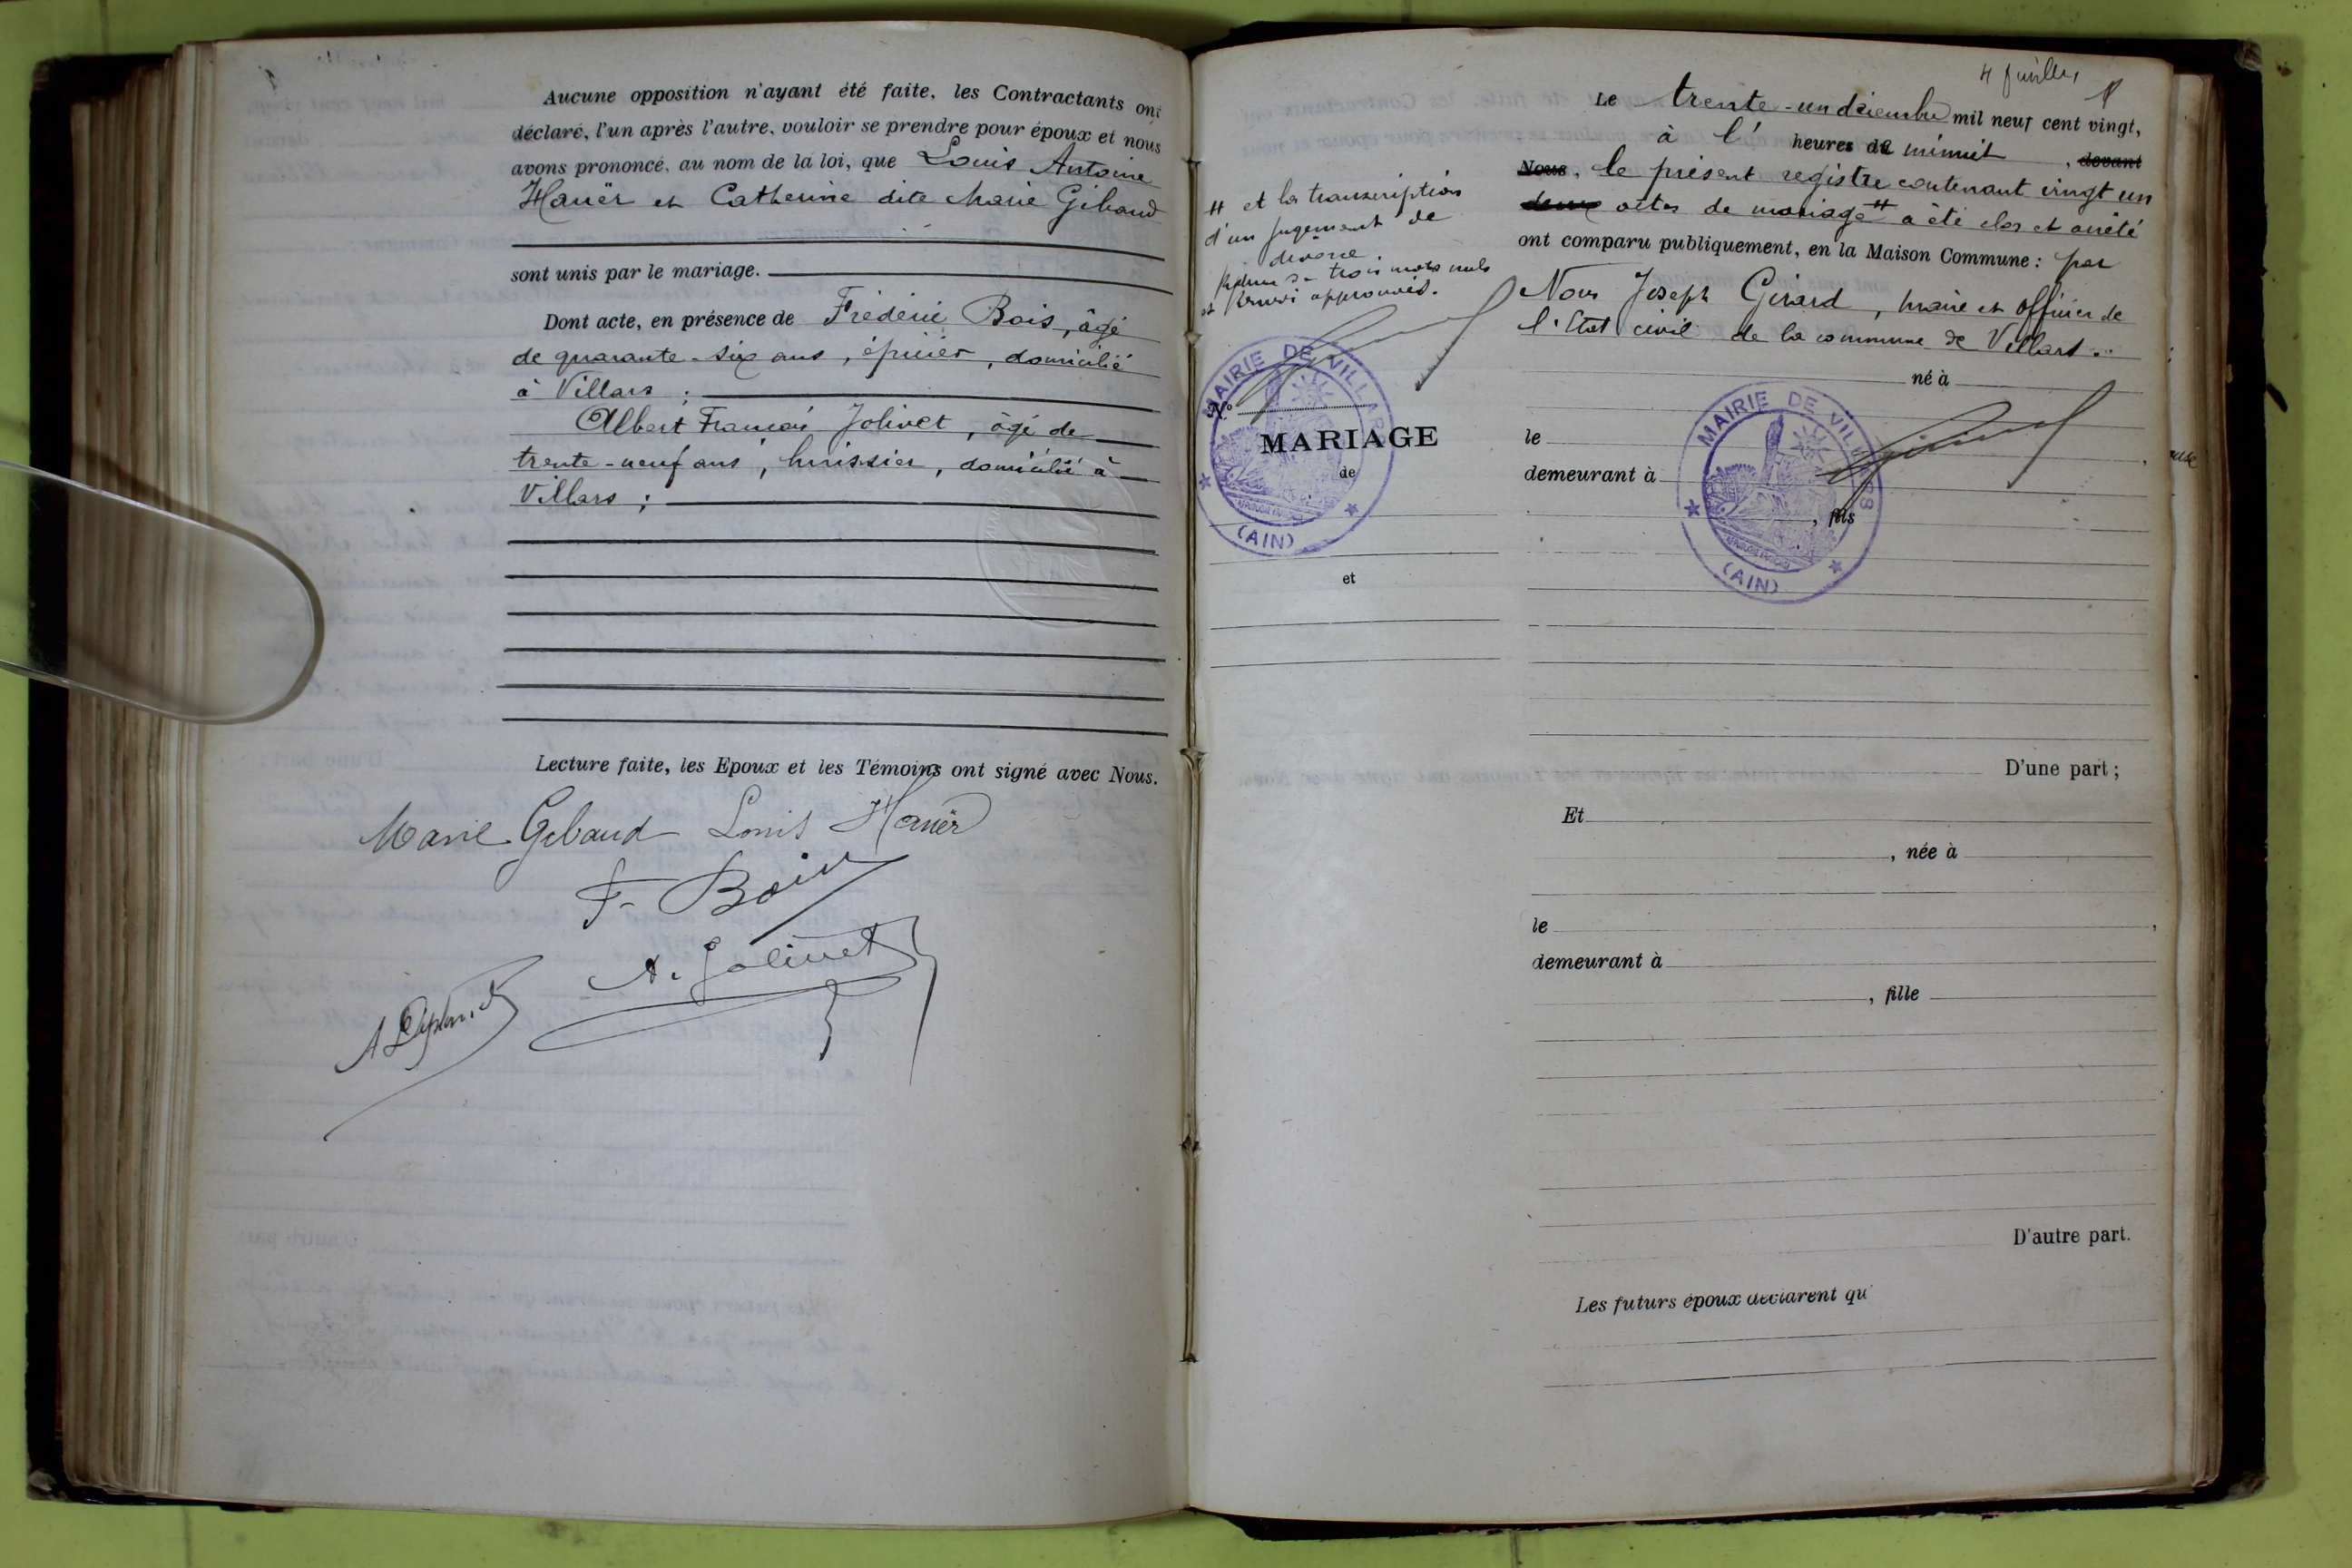 Aucune opposition n'ayant été faite, les Contractants ont
déclaré, l'un après l'autre, vouloir se prendre pour époux et nous
avons prononcé, au nom de la loi, que Louis Antoine
Hauër et Catherine dite Marie Gibaud
sont unis par le mariage.
Dont acte, en présence de Frédéric Bois, âgé
de quarante-six ans, épicier, domicilié
à Villars ;
Albert François Jolivet, âgé de
trente-neuf ans, huissier, domicilié à
Villars ;
Lecture faite, les Epoux et les Témoins ont signé avec Nous.
Marie Gibaud Louis Hauër
F. Bois
A. Jolivet
4 feuillet
Le trente-un décembre mil neuf cent vingt,
à l' heures de minuit, devant
Nous, le présent registre contenant vingt un
deux actes de mariage # a été clos et arrêté
ont comparu publiquement, en la Maison Commune : par
Nous Joseph Girard, maire et officier de
l'Etat civil de la commune de Villars.
né à
le
demeurant à
, fils
D'une part ;
Et
, née à
le
demeurant à
, fille
D'autre part.
Les futurs époux déclarent qu
# et la transcription
d'un jugement de
divorce
trois mots nuls
et renvoi approuvés.
MAIRIE DE VILLARS
(AIN)
N°
MARIAGE
de
et
MAIRIE DE VILLARS
(AIN)